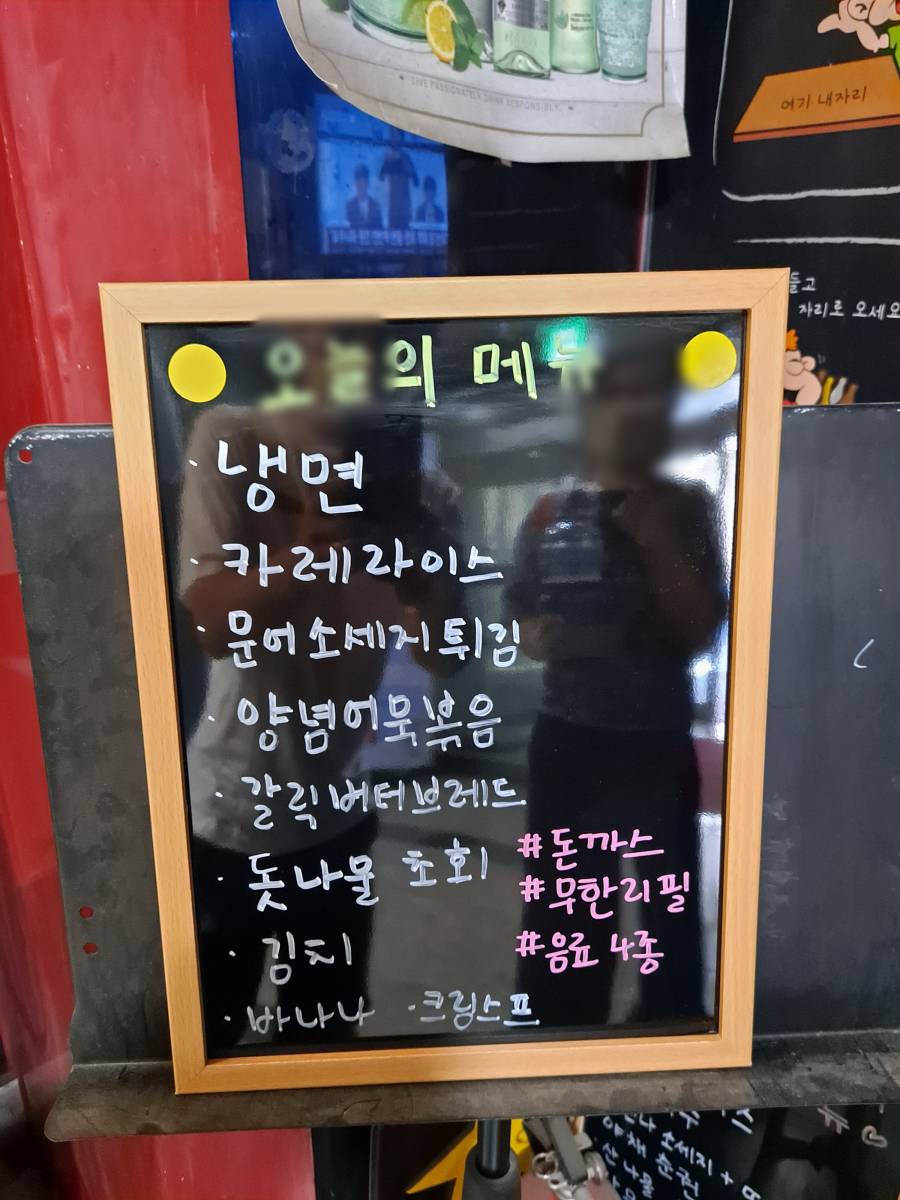 LIVE PASSIONATELY. DRINK RESPONSIBLY.
여기 내자리
들고
자리로 오세요
오늘의 메뉴
· 냉면
· 카레라이스
· 문어소세지튀김
· 양념어묵볶음
· 갈릭버터브레드
· 돗나물 초회
#돈까스
#무한리필
· 김치
#음료 4종
· 바나나 · 크림스프
소세지 +
야채 춘권
산나물